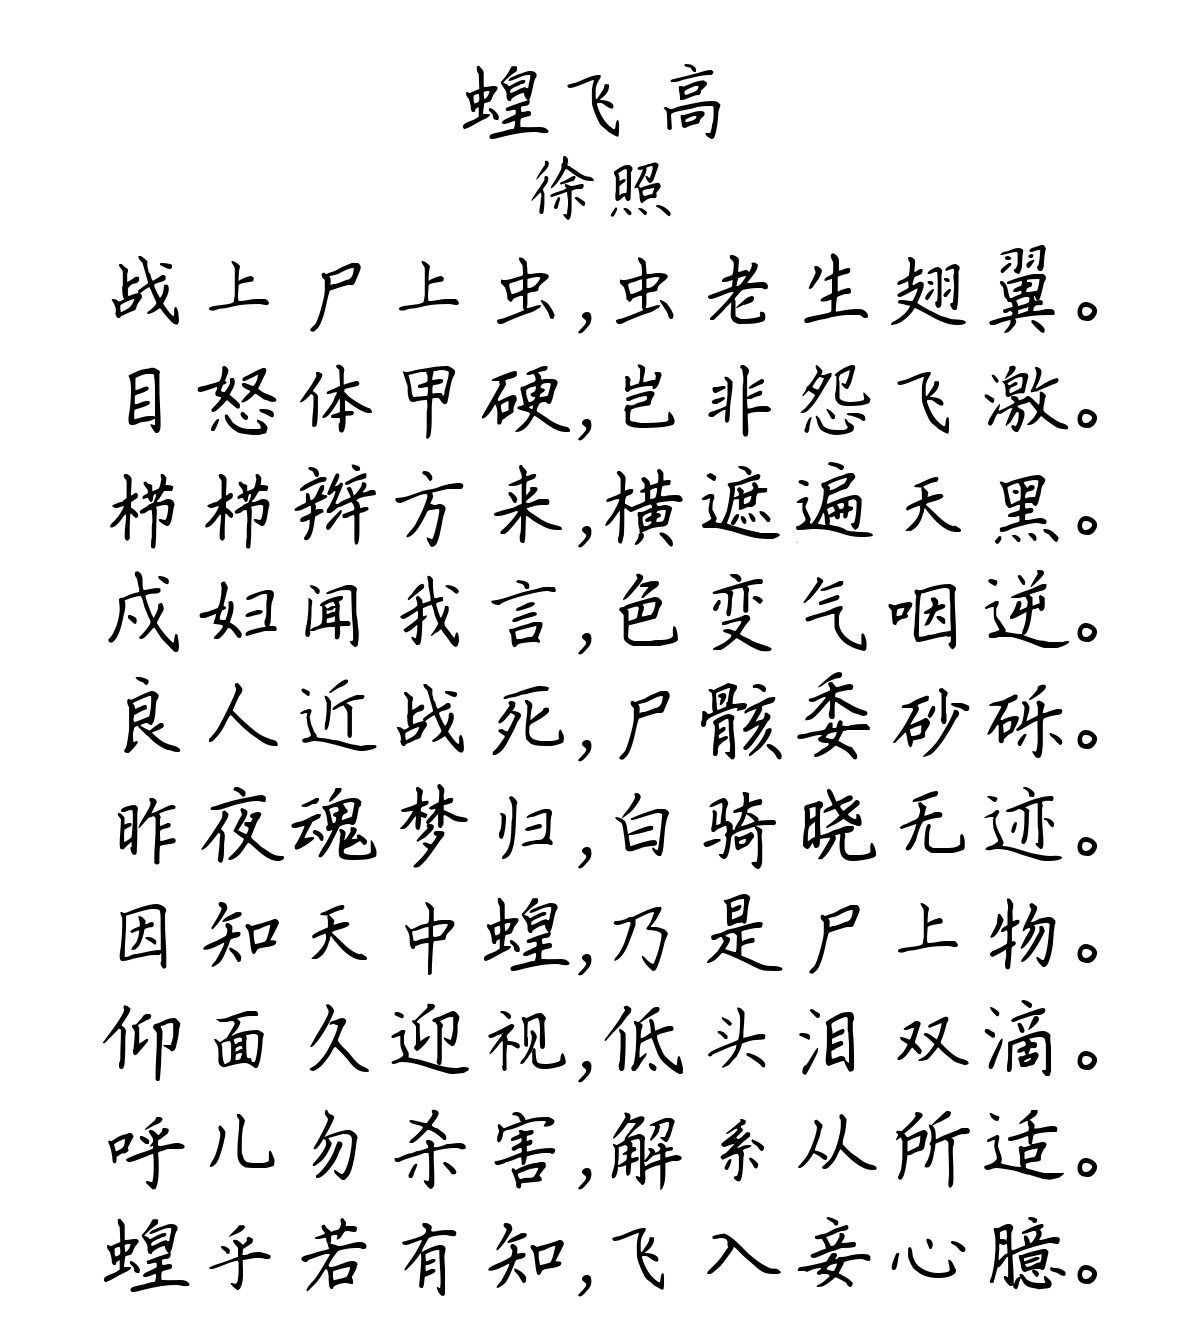 蝗飞高
徐照
战上尸上虫,虫老生翅翼。
目怒体甲硬,岂非怨飞激。
栉栉辫方来,横遮遍天黑。
戍妇闻我言,色变气咽逆。
良人近战死,尸骸委砂砾。
昨夜魂梦归,白骑晓无迹。
因知天中蝗,乃是尸上物。
仰面久迎视,低头泪双滴。
呼儿勿杀害,解系从所适。
蝗乎若有知,飞入妾心臆。